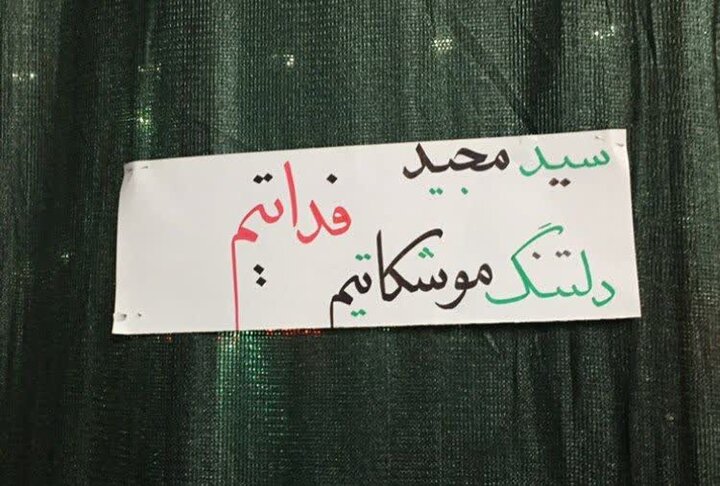 سید مجید
فداتیم
دلتنگ موشکاتیم